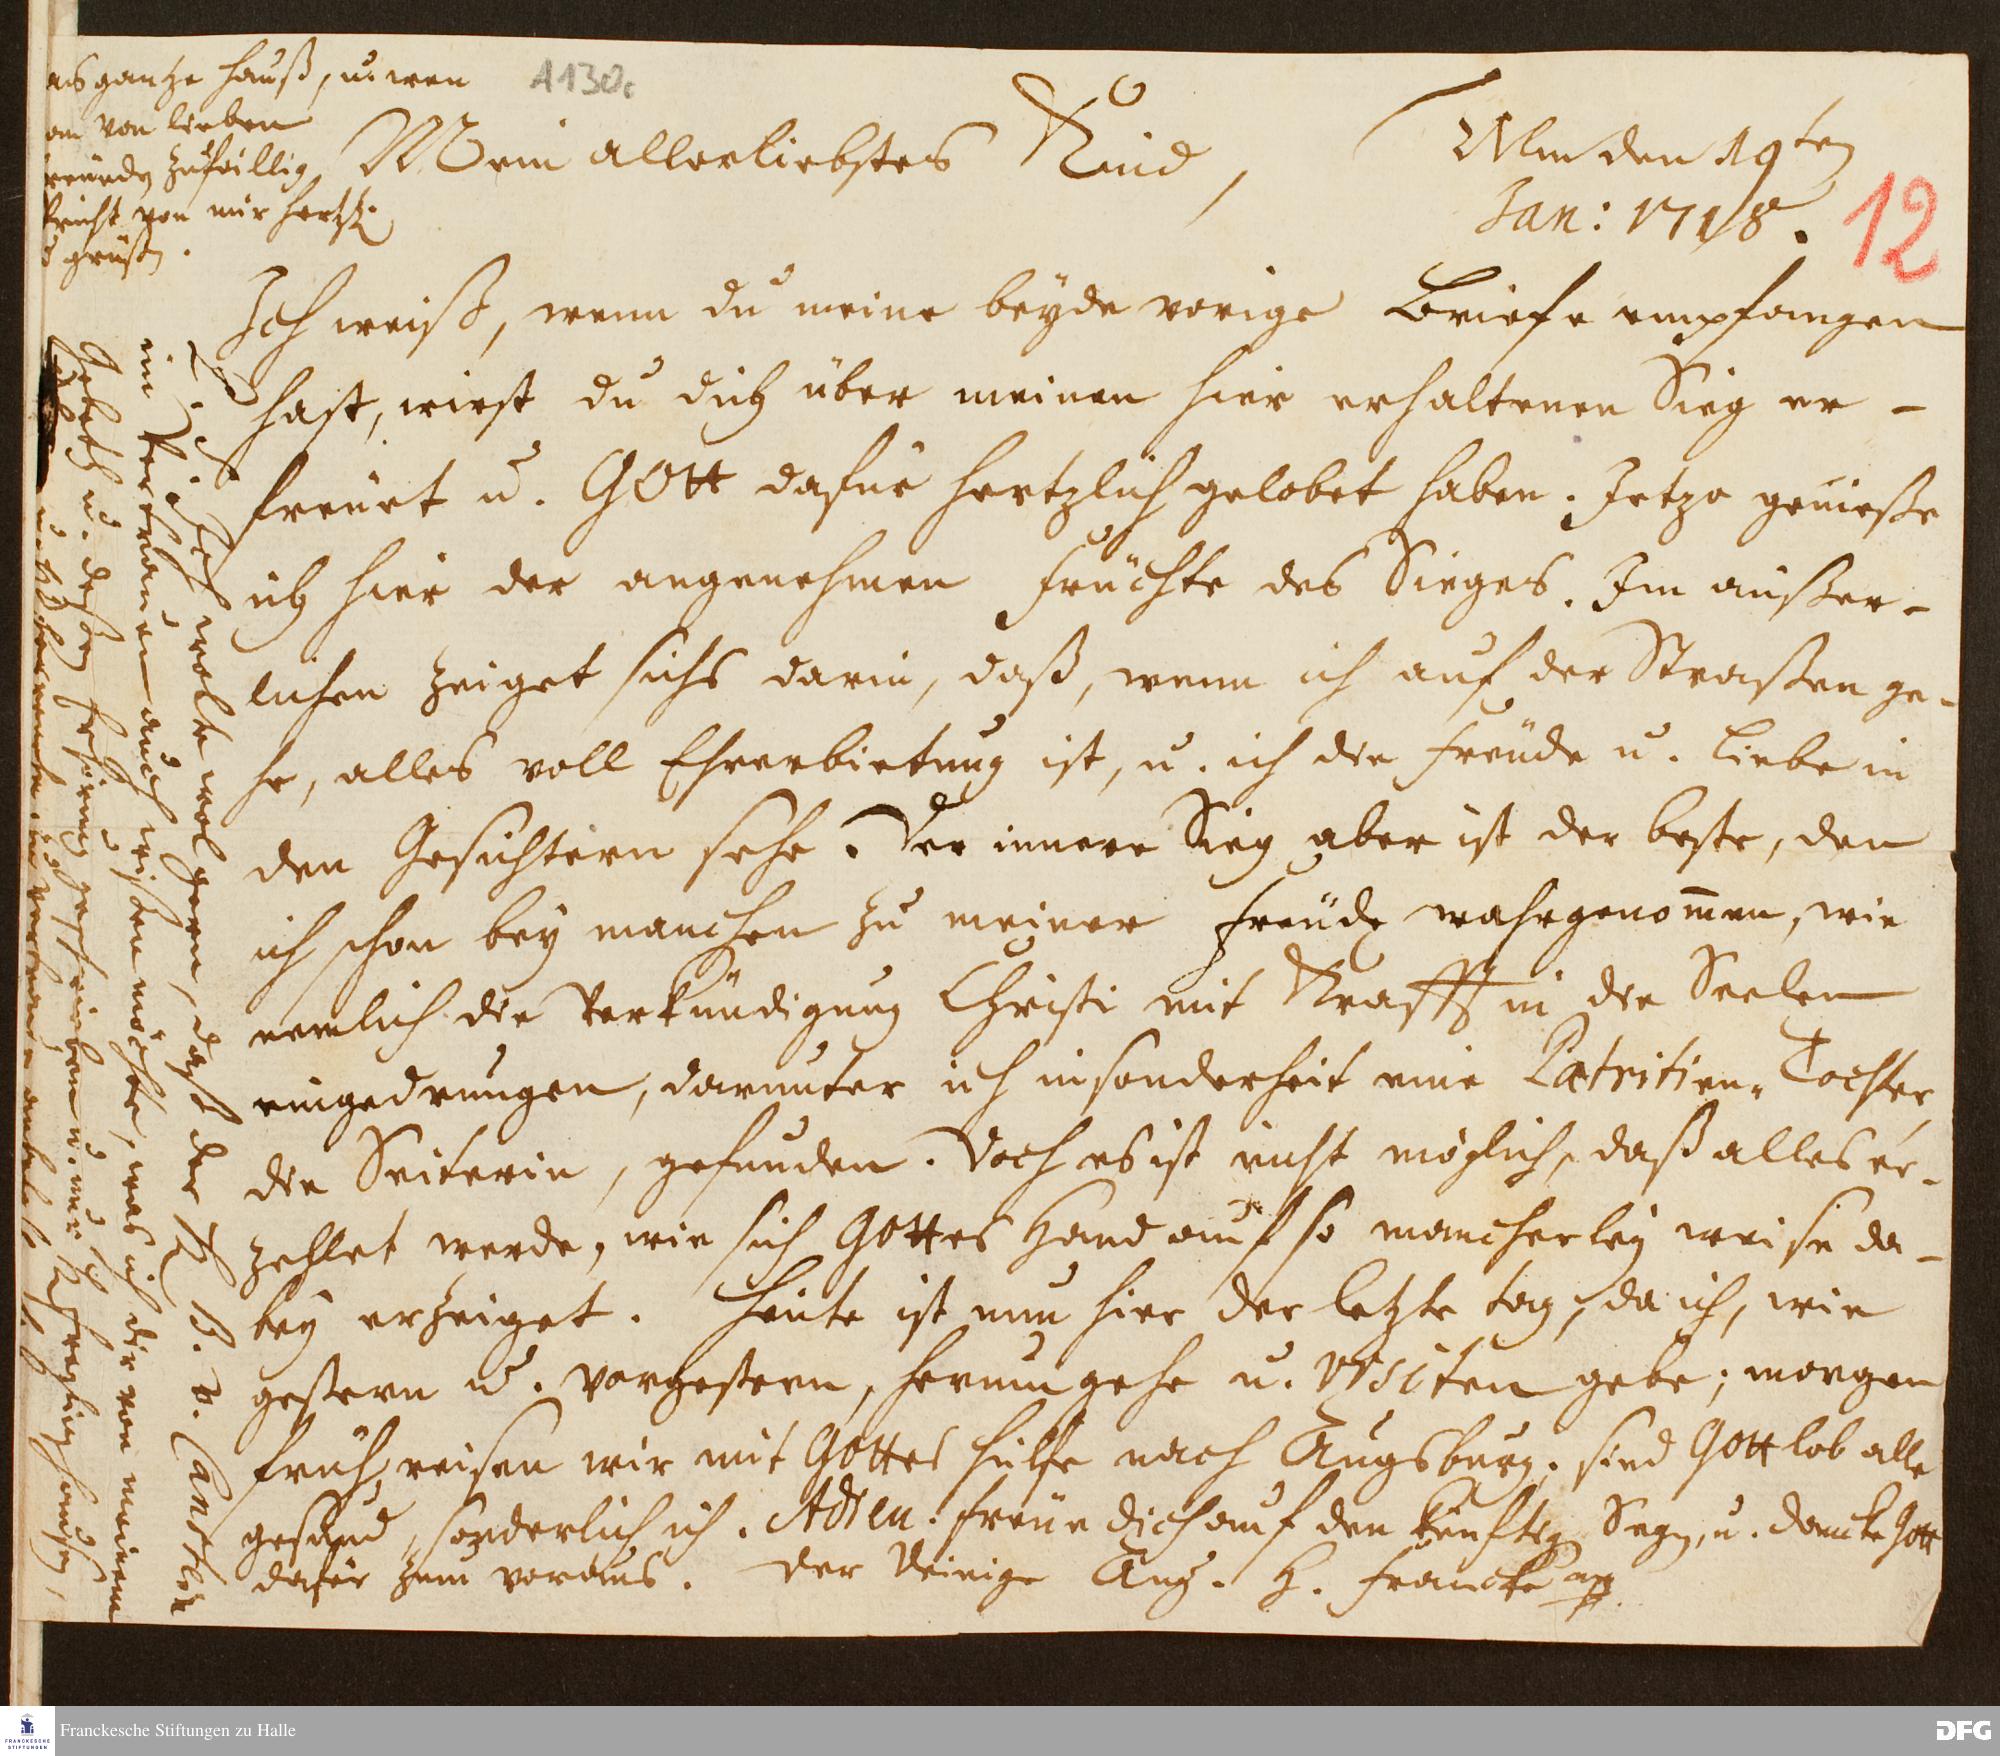 A130c
12
Ulm den 19ten
Jan: 1718.
Mein allerliebstes Kind,
Ich weiß, wenn du meine beyde vorige Briefe empfangen
hast, wirst du dich über meinen hier erhaltenen Sieg er-
freuet u. GOtt dafür hertzlich gelobet haben. Jetzo genieße
ich hier der angenehmen Früchte des Sieges. Im äußer-
lichen zeiget sichs darin, daß, wenn ich auf der Straßen ge-
he, alles voll Ehrerbietung ist, u. ich die Freude u. Liebe in
den Gesichtern sehe. Der innere Sieg aber ist der beste, den
ich schon bey manchen zu meiner Freude wahrgenom̅en, wie
nemlich die Verkündigung Christi mit Krafft in die Seelen
eingedrungen, darunter ich insonderheit eine Patritien-Tochter
die Seiterin, gefunden. Doch es ist nicht möglich, daß alles er-
zehlet werde, wie sich Gottes Hand auf so mancherley weise da-
bey erzeiget. Heute ist nun hier der letzte tag, da ich, wie
gestern u. vorgestern, herum gehe u. Visiten gebe; morgen
früh reisen wir mit Gottes hülfe nach Augsburg. sind Gott lob alle
gesund, sonderlich ich. Adieu. freue dich auf den künftig Segen, u. dancke Gott
dafür zum voraus. Der Deinige Aug. H. Francke
Ich wolte wol gern, daß der H. B. v. Canstein
im Vertrauen auch wissen möchte, was ich dir von meinem
Gebeth u. deßen Erhörung geschrieben u.
das gantze Hauß, u. wen
von lieben
zufällig
von mir hertzl.
grüßen.
Franckesche Stiftungen zu Halle
FRANCKESCHE
STIFTUNGEN
DFG